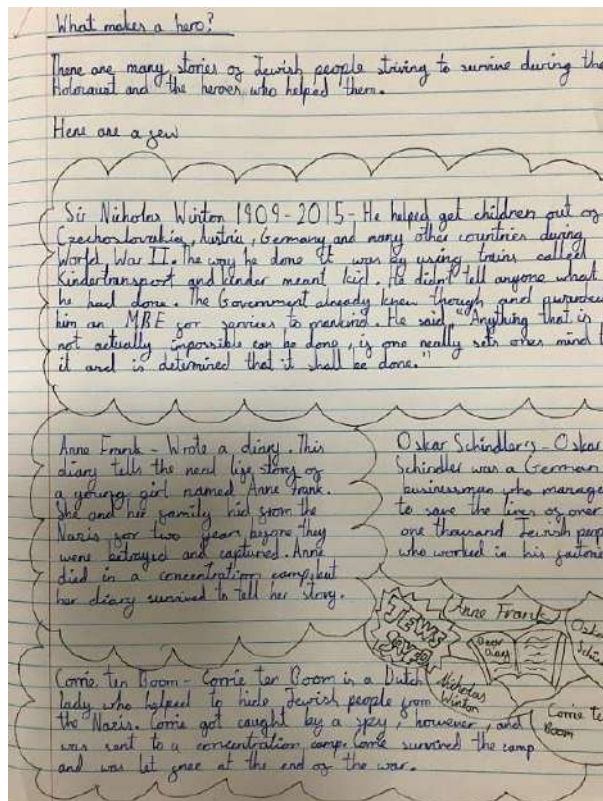 What makes a hero?
There are many stories of Jewish people striving to survive during the
Holocaust and the heroes who helped them.
Here are a few
Sir Nicholas Winton 1909-2015- He helped get children out of
Czechoslovakia, Austria, Germany and many other countries during
World War II. The way he done it was by using trains called
Kindertransport and kinder meant kid. He didn't tell anyone what
he had done. The Government already knew though and awarded
him an MBE for services to mankind. He said, "Anything that is
not actually impossible can be done, if one really sets ones mind t
it and is determined that it shall be done."
Anne Frank - Wrote a diary. This
diary tells the real life story of
a young girl named Anne Frank.
She and her family hid from the
Nazis for two years before they
were betrayed and captured. Anne
died in a concentration camp, but
her diary survived to tell her story.
Oskar Schindler's - Oskar
Schindler was a German
businessman who manage
to save the lives of over
one thousand Jewish peop
who worked in his factorie
JEWS
SAVED
Anne Frank
Dear
Diary
Oska
Schin
Nicholas
Winton
Corrie te
Boom
Corrie ten Boom - Corrie ten Boom is a Dutch
lady who helped to hide Jewish people from
the Nazis. Corrie got caught by a spy, however, and
was sent to a concentration camp. Corrie survived the camp
and was let free at the end of the war.